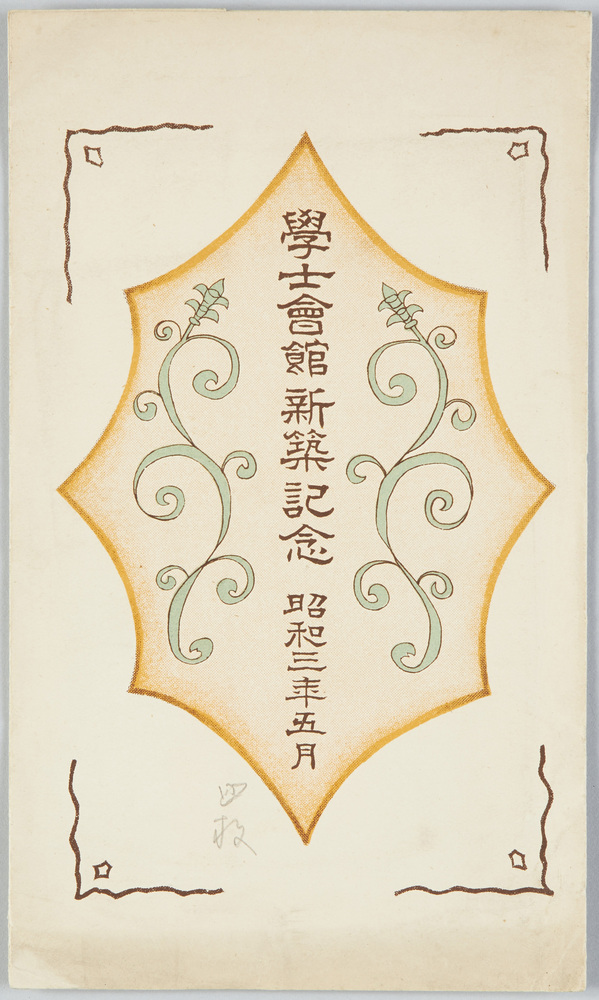 學士會館新築記念
昭和三年五月
四枚